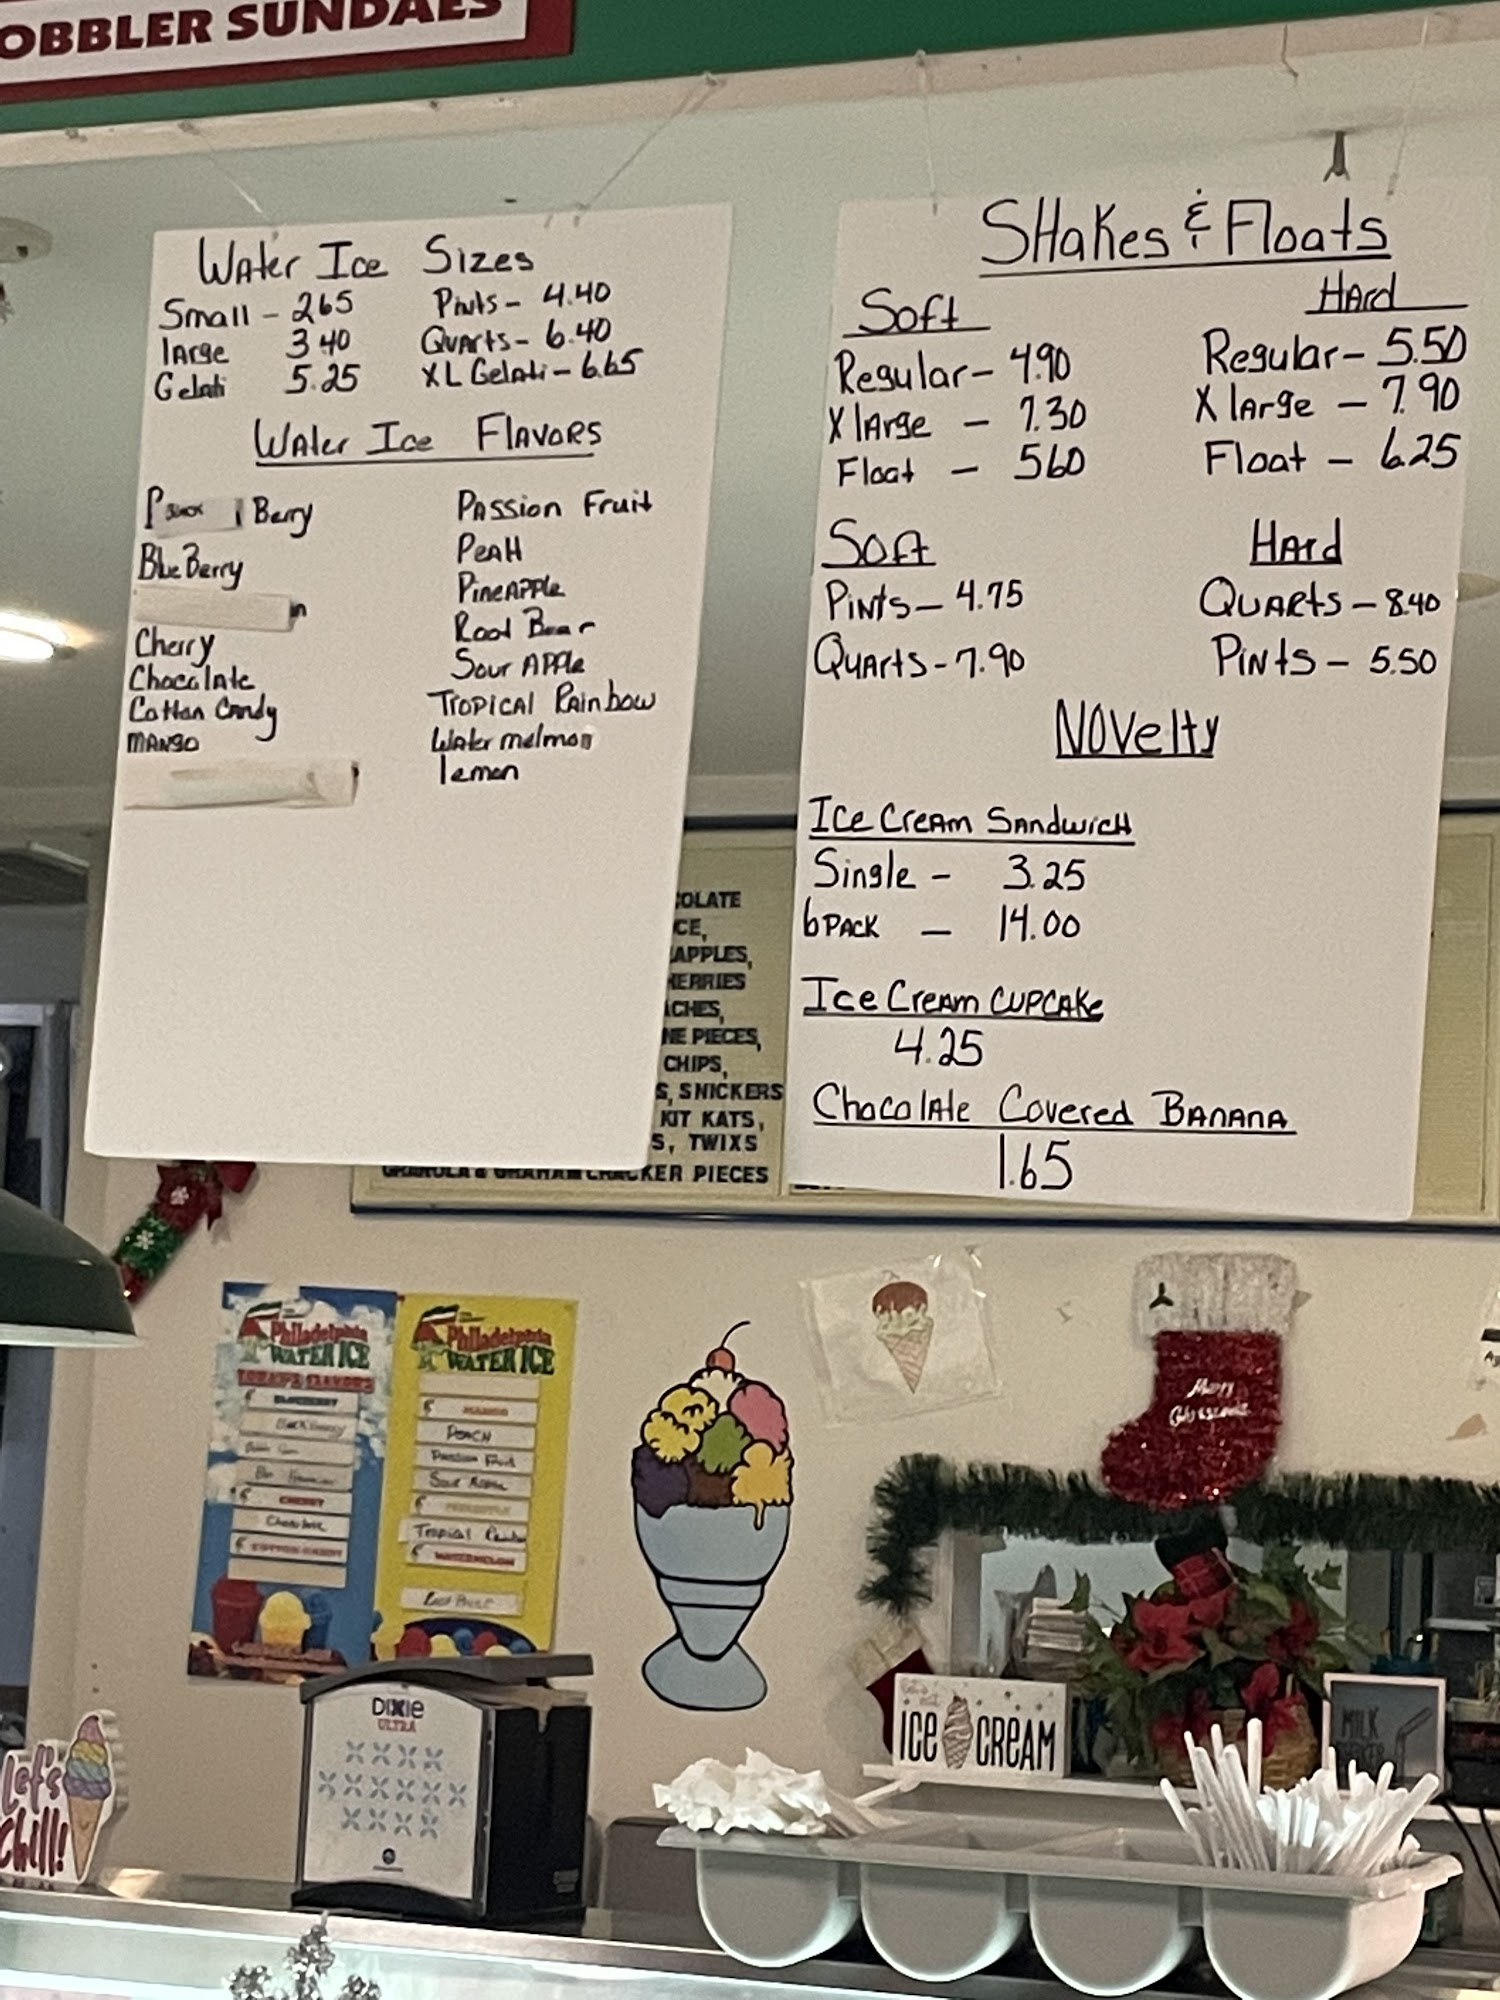 OBBLER SUNDAES
Water Ice Sizes
Small - 2.65
large 3.40
Gelati 5.25
Pints - 4.40
Quarts - 6.40
XL Gelati - 6.65
Water Ice Flavors
Black Berry
Blue Berry
Cherry
Chocolate
Cotton Candy
MANGO
Passion Fruit
PeaH
PineAPPle
Root Bear
Sour APPle
TROPICAL Rainbow
Water melmon
lemon
SHakes & Floats
Soft
Regular - 4.90
X large - 7.30
Float - 5.60
Hard
Regular - 5.50
X large - 7.90
Float - 6.25
Soft
Pints - 4.75
Quarts - 7.90
Hard
Quarts - 8.40
Pints - 5.50
Novelty
Ice Cream Sandwich
Single - 3.25
6 PACK - 14.00
Ice Cream CUPCAKe
4.25
Chocolate Covered Banana
1.65
COLATE
CE,
APPLES,
HERRIES
ACHES,
NE PIECES,
CHIPS,
S, SNICKERS
KIT KATS,
S, TWIXS
GRANOLA & GRAHAM CRACKER PIECES
Philadelphia
WATER ICE
TODAY'S FLAVORS
BLUEBERRY
Blackberry
CHERRY
Chocolate
COTTON CANDY
Philadelphia
WATER ICE
MANGO
PeacH
Passion Fruit
Sour Apple
PINEAPPLE
Tropical Rainbow
WATERMELON
Root Beer
Merry
Christmas
DIXIE
ULTRA
ICE CREAM
MILK
SHAKES
Let's
Chill!